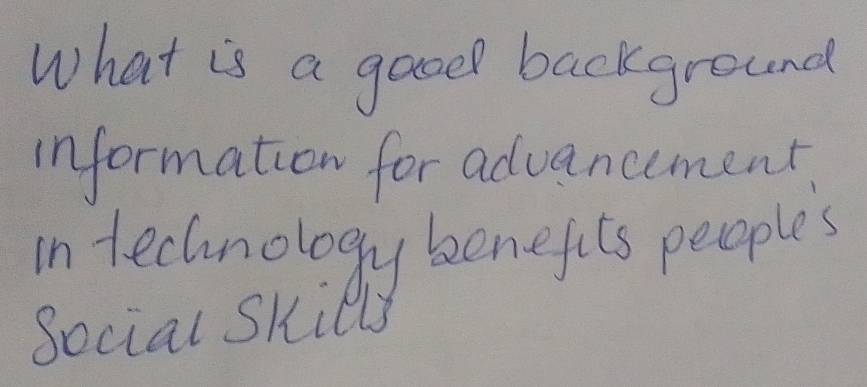 What is a good background
information for advancement
in technology benefits people's
Social Skills